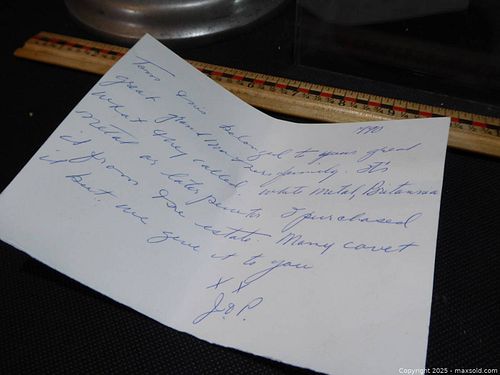 1990
Tom this belonged to your great
great grand Mothers family. It's
what they called "white metal, Britannia
metal or later pewter I purchased
it from the estate. Many covet
it but we give it to you
X X
J.&P.
Copyright 2025 - maxsold.com